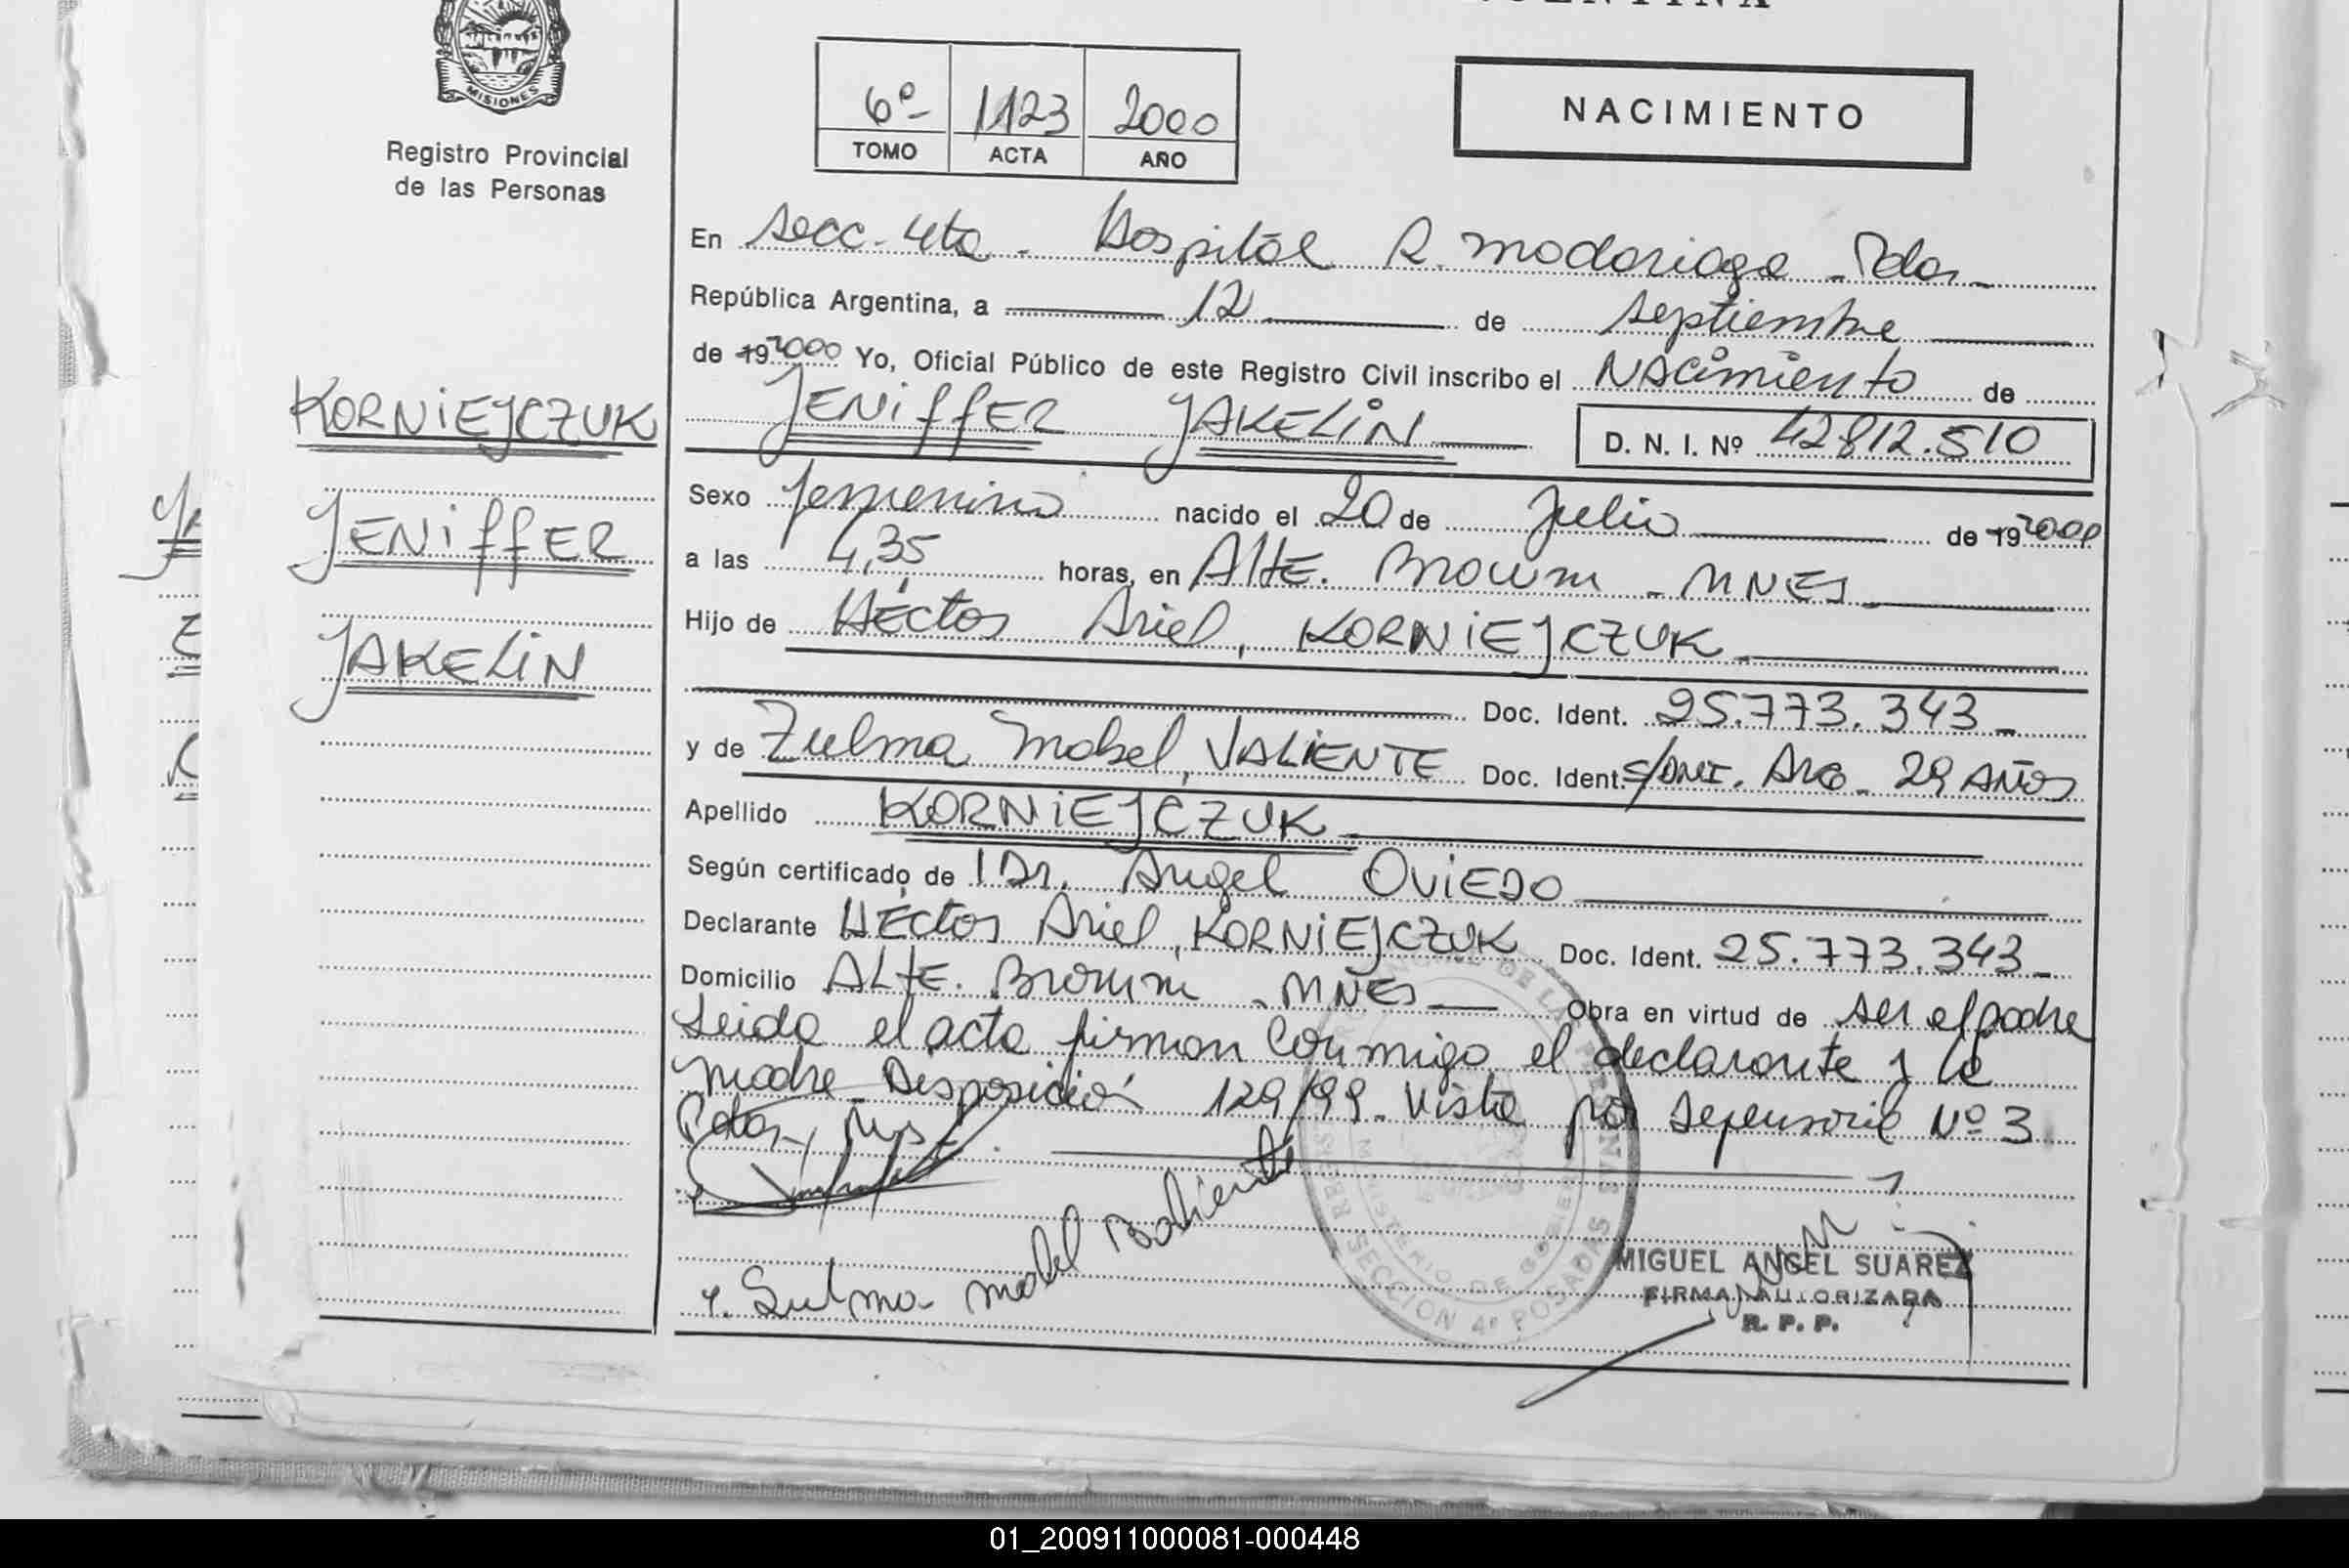 MISIONES
Registro Provincial
de las Personas
6º 1123 2000
TOMO ACTA AÑO
NACIMIENTO
En Secc. 4ta. Hospital R. Madariaga - Pdas.
República Argentina, a 12 de septiembre
de 19 2000 Yo, Oficial Público de este Registro Civil inscribo el Nacimiento de
JENiffER JAKELiN D. N. I. Nº 42812.510
KORNiEJCZUK
JENiffER
JAKELiN
Sexo femenino nacido el 20 de Julio de 19 2000
a las 4,35 horas, en Alte. Brown - MNES
Hijo de Héctor Ariel, KORNiEJCZUK
Doc. Ident. 25.773.343
y de Zulma Mabel, VALIENTE Doc. Ident. S/DNI. Arg. 29 AÑOS
Apellido KORNiEJCZUK
Según certificado de 1 Dr. Angel OViEDO
Declarante Héctor Ariel, KORNiEJCZUK Doc. Ident. 25.773.343
Domicilio ALtE. Brown - MNES Obra en virtud de ser el padre
Leida el acta firman conmigo el declarante y la
madre Disposición 129/99. Vista por defensoria Nº 3
Pdas, Mns.
Sulma mabel Baliente
SECCION 4ª POSADAS
MINISTERIO DE GOBIERNO
MIGUEL ANGEL SUAREZ
FIRMA AUTORIZADA
R. P. P.
01_200911000081-000448